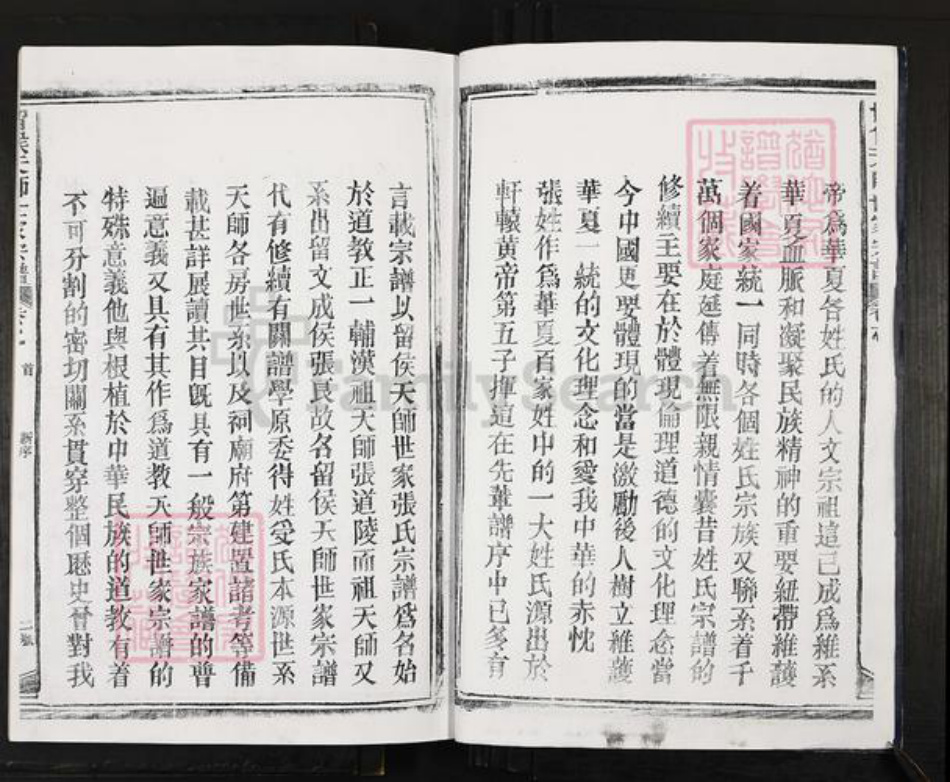 帝爲華夏各姓氏的人文宗祖這已成爲維系
華夏血脈和凝聚民族精神的重要紐帶維護
着國家統一同時各個姓氏宗族又聯系着千
萬個家庭延傳着無限親情曩昔姓氏宗譜的
修續主要在於體現倫理道德的文化理念當
今中國更要體現的當是激勵後人樹立維護
華夏一統的文化理念和愛我中華的赤忱
張姓作爲華夏百家姓中的一大姓氏源出於
軒轅黄帝第五子揮這在先輩譜序中已多有
言載宗譜以留侯天師世家張氏宗譜爲名始
於道教正一輔漢祖天師張道陵而祖天師又
系出留文成侯張良故名留侯天師世家宗譜
代有修續有關譜學原委得姓受氏本源世系
天師各房世系以及祠廟府第建置諸考等備
載甚詳展讀其目既具有一般宗族家譜的普
遍意義又具有其作爲道教天師世家宗譜的
特殊意義他與根植於中華民族的道教有着
不可分割的密切關系貫穿整個歷史晉對我
首
新序
二張
FamilySearch